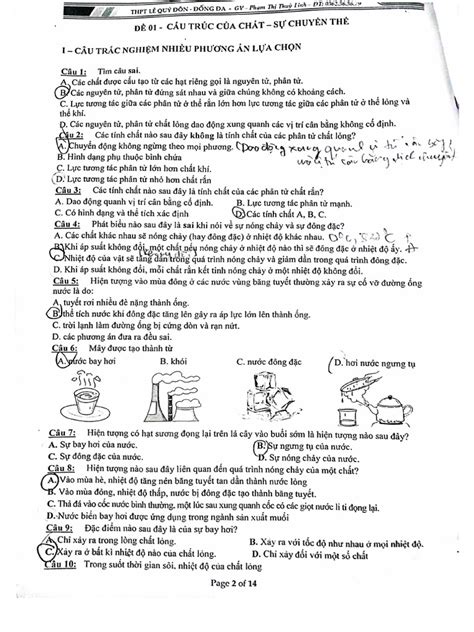 THPT LÊ QUÝ ĐÔN - ĐỐNG ĐA - GV - Phạm Thị Thuỳ Linh - ĐT:
ĐỀ 01 - CẤU TRÚC CỦA CHẤT – SỰ CHUYỂN THỂ
I – CÂU TRẮC NGHIỆM NHIỀU PHƯƠNG ÁN LỰA CHỌN
Câu 1: Tìm câu sai.
A. Các chất được cấu tạo từ các hạt riêng gọi là nguyên tử, phân tử.
B. Các nguyên tử, phân tử đứng sát nhau và giữa chúng không có khoảng cách.
C. Lực tương tác giữa các phân tử ở thể rắn lớn hơn lực tương tác giữa các phân tử ở thể lỏng và
thể khí.
D. Các nguyên tử, phân tử chất lỏng dao động xung quanh các vị trí cân bằng không cố định.
Câu 2: Các tính chất nào sau đây không là tính chất của các phân tử chất lỏng?
A. Chuyển động không ngừng theo mọi phương. (Dao động xung quanh vị trí cân bằng
B. Hình dạng phụ thuộc bình chứa
C. Lực tương tác phân tử lớn hơn chất khí.
D. Lực tương tác phân tử nhỏ hơn chất rắn
Câu 3: Các tính chất nào sau đây là tính chất của các phân tử chất rắn?
A. Dao động quanh vị trí cân bằng cố định. B. Lực tương tác phân tử mạnh.
C. Có hình dạng và thể tích xác định D. Các tính chất A, B, C.
Câu 4: Phát biểu nào sau đây là sai khi nói về sự nóng chảy và sự đông đặc?
A. Các chất khác nhau sẽ nóng chảy (hay đông đặc) ở nhiệt độ khác nhau.
B. Khi áp suất không đổi, một chất nếu nóng chảy ở nhiệt độ nào thì sẽ đông đặc ở nhiệt độ ấy.
C. Nhiệt độ của vật sẽ tăng dần trong quá trình nóng chảy và giảm dần trong quá trình đông đặc.
D. Khi áp suất không đổi, mỗi chất rắn kết tinh nóng chảy ở một nhiệt độ không đổi.
Câu 5: Hiện tượng vào mùa đông ở các nước vùng băng tuyết thường xảy ra sự cố vỡ đường ống
nước là do:
A. tuyết rơi nhiều đè nặng thành ống.
B. thể tích nước khi đông đặc tăng lên gây ra áp lực lớn lên thành ống.
C. trời lạnh làm đường ống bị cứng dòn và rạn nứt.
D. các phương án đưa ra đều sai.
Câu 6: Mây được tạo thành từ
A. nước bay hơi B. khói C. nước đông đặc D. hơi nước ngưng tụ
Câu 7: Hiện tượng có hạt sương đọng lại trên lá cây vào buổi sớm là hiện tượng nào sau đây?
A. Sự bay hơi của nước. B. Sự ngưng tụ của nước.
C. Sự đông đặc của nước. D. Sự nóng chảy của nước.
Câu 8: Hiện tượng nào sau đây liên quan đến quá trình nóng chảy của một chất?
A. Vào mùa hè, nhiệt độ tăng nên băng tuyết tan dần thành nước lỏng
B. Vào mùa đông, nhiệt độ thấp, nước bị đông đặc tạo thành băng tuyết.
C. Thả đá vào cốc nước bình thường, một lúc sau xung quanh cốc có các giọt nước li ti đọng lại.
D. Nước biển bay hơi được ứng dụng trong ngành sản xuất muối
Câu 9: Đặc điểm nào sau đây là của sự bay hơi?
A. Xảy ra trong lòng chất lỏng. B. Xảy ra với tốc độ như nhau ở mọi nhiệt độ.
C. Xảy ra ở bất kì nhiệt độ nào của chất lỏng. D. Chỉ xảy đối với một số chất
Câu 10: Trong suốt thời gian sôi, nhiệt độ của chất lỏng
Page 2 of 14